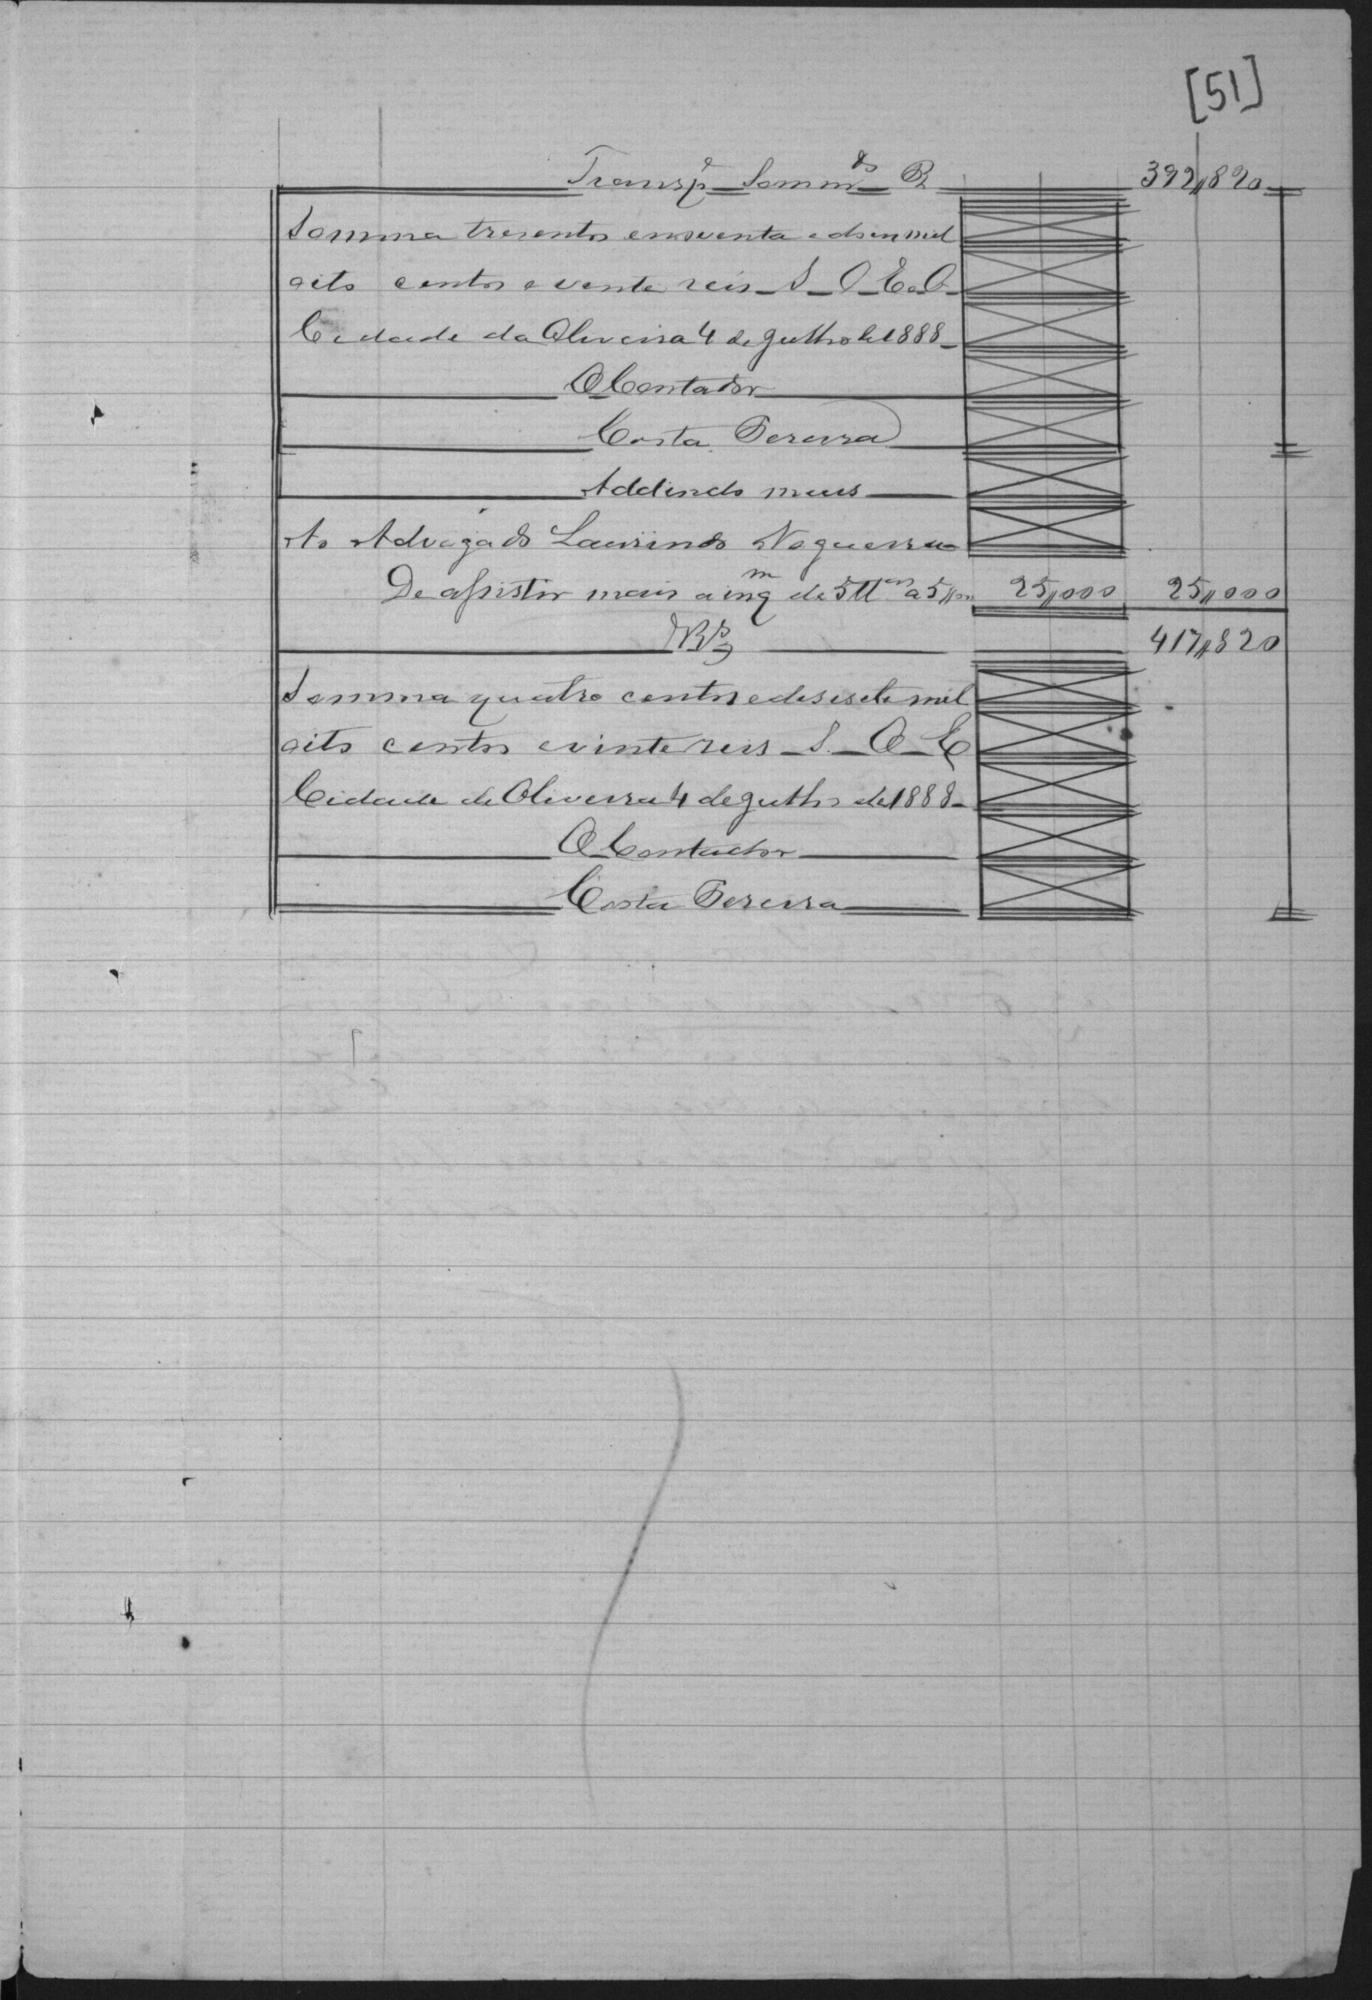 [51]
Transp.e Somm.do R 392,,820
Somma tresentos enoventa e dois mil
oito centos e vente reis _ S _ O _ E. O _
Cidade da Oliveira 4 de Julho de 1888 _
O Contador
Costa Pereira
Addindo mais
Ao Advogado Laurindo Nogueira
De assistir mais a inq.m de 5 tt.as a 5,,000 25,,000 25,,000
Rs 417,,820
Somma quatro centos e desesete mil
oito centos e vinte reis _ S. _ O _ E
Cidade de Oliveira 4 de Julho de 1888 _
O Contador
Costa Pereira